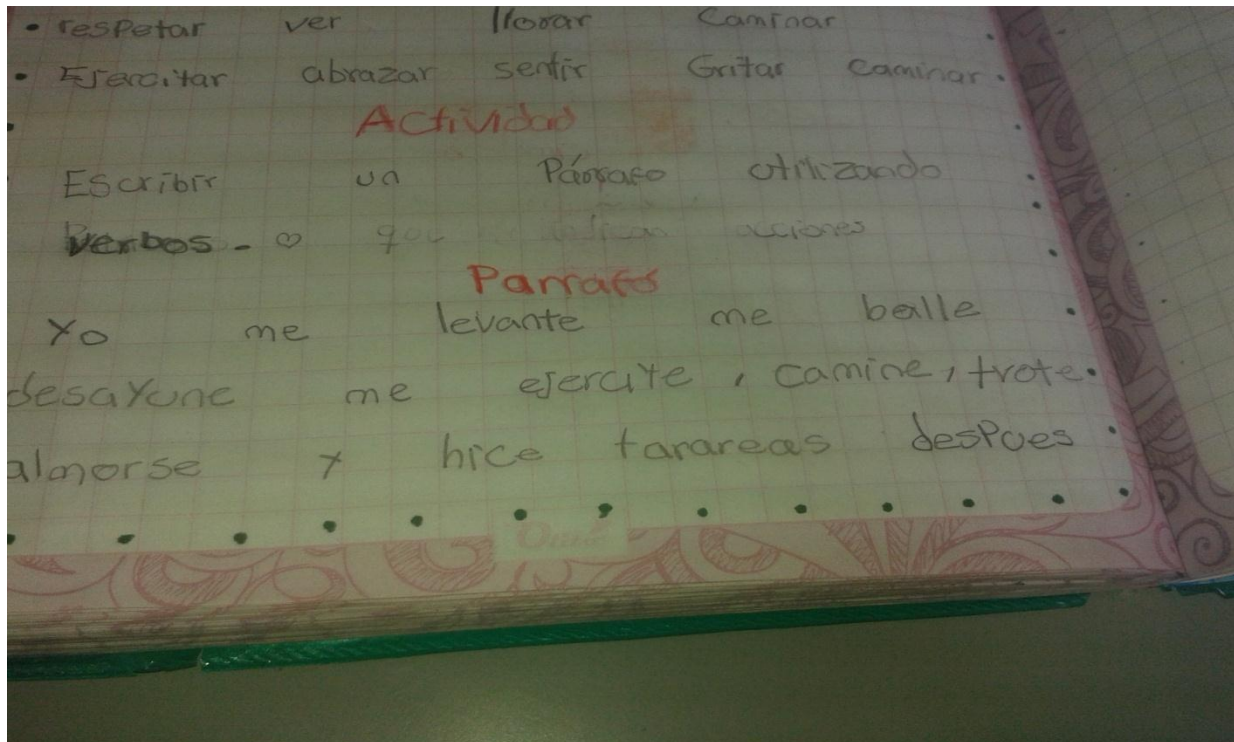 respetar ver llorar Caminar
Ejercitar abrazar sentir Gritar caminar.
Actividad
Escribir un Párrafo utilizando
verbos. que indican acciones
Parrafo
Yo me levante me balle
desayune me ejercite, camine, trote.
almorse y hice tarareas despues